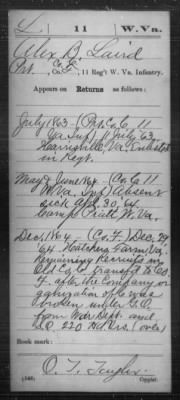 L. 11 W. Va.
Alex B. Laird
Pvt., Co. F, 11 Reg't W. Va. Infantry.
Appears on Returns as follows:
July 1863 - (Pvt Co C 11
Va. Inf) July 63,
Harrisville, Va. Enlisted
in Regt.
May & June 1864 - (Co. C 11
W. Va. Inf) Absent
sick Apr. 30, 64.
Camp Piatt, W. Va.
Dec, 1864 - (Co. F.) Dec. 29,
64. Hatchers Farm Va.
Remaining Recruits in
Old Co. C. transfd to Co.
F. after the Company or-
ganization of C was
broken under G.O.
from War Dept. and
S.O. 220 Hd Qrs. (over)
Book mark:
(546) Copyist.